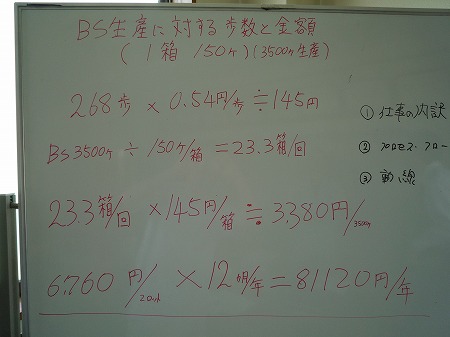 BS生産に対する歩数と金額
(1箱 150ヶ)(3500ヶ生産)
268歩 × 0.54円/歩 ≒ 145円
BS3500ヶ ÷ 150ヶ/箱 = 23.3箱/回
23.3箱/回 × 145円/箱 ≒ 3,380円/3500ヶ
6,760円/2ロット × 12ヶ月/年 = 81120円/年
① 仕事の内訳
② プロセス・フロー
③ 動線